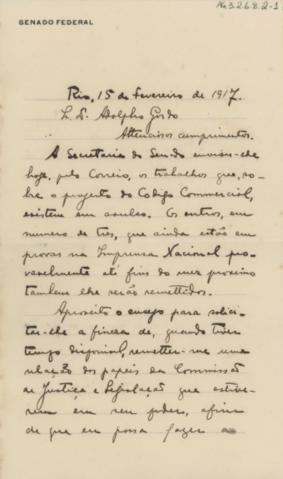 SENADO FEDERAL
Rio, 15 de Fevereiro de 1917.
Adolpho Gordo
Attenciosos cumprimentos.
A Secretaria do Senado enviou-lhe
hoje, pelo Correio, os trabalhos que, so-
bre o projecto do Codigo Commercial,
existem em avulso. Os outros, em
numero de tres, que ainda estão em
provas na Imprensa Nacional pro-
vavelmente até fins do mez proximo
tambem lhe serão remettidos.
Aproveito o ensejo para solici-
tar-lhe a fineza de, quando tiver
tempo disponivel, remetter-me uma
relação dos papeis da Commissão
de Justiça e Legislação que estive-
rem em seu poder, afim
de que eu possa fazer a